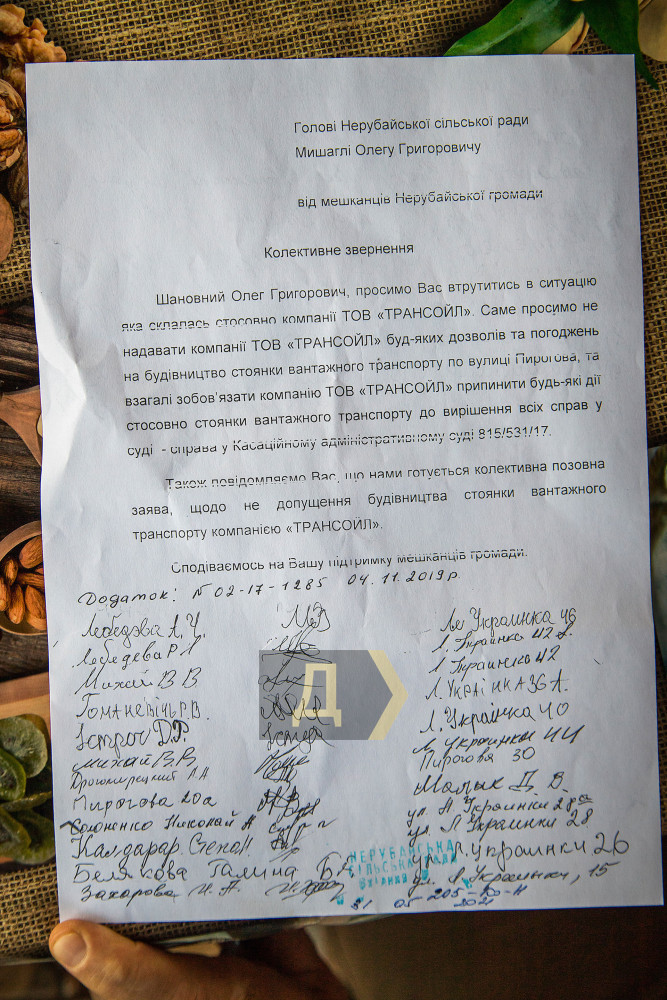 Голові Нерубайської сільської ради
Мишаглі Олегу Григоровичу
від мешканців Нерубайської громади
Колективне звернення
Шановний Олег Григорович, просимо Вас втрутитись в ситуацію
яка склалась стосовно компанії ТОВ «ТРАНСОЙЛ». Саме просимо не
надавати компанії ТОВ «ТРАНСОЙЛ» буд-яких дозволів та погоджень
на будівництво стоянки вантажного транспорту по вулиці Пирогова, та
взагалі зобов'язати компанію ТОВ «ТРАНСОЙЛ» припинити будь-які дії
стосовно стоянки вантажного транспорту до вирішення всіх справ у
суді - справа у Касаційному адміністративному суді 815/531/17.
Також повідомляємо Вас, що нами готується колективна позовна
заява, щодо не допущення будівництва стоянки вантажного
транспорту компанією «ТРАНСОЙЛ».
Сподіваємось на Вашу підтримку мешканців громади.
Додаток: N 02-17-1285 04.11.2019р.
Лебедева А.Ч. Украинка 46
Лебедева Р.Л Л. Украинка 42
Михай В.В. Л Украинка 42
Л. Українка 36 А.
Д.Г. Л. Українка 40
Михай В.В. Украинки 44
Пирогова 30
Пирогова 20а Малых Д. В.
Николай А ул. Л Украинки 28а
Калдарар Степан. ул. Л Украинки 28
Белякова Галина ул. Л.Украинки 26
Захарова Н.А. ул. Л. Украинки, 15
Д
НЕРУБАЙСЬКА
СІЛЬСЬКА РАДА
31 05 205-Ко-Н
2021